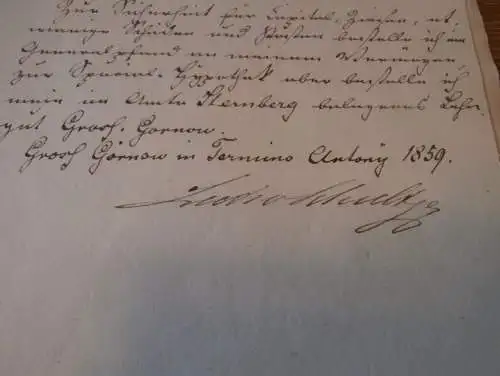 Zur Sicherheit für Capital, Zinsen, et-
wanige Schäden und Kosten bestelle ich ein
Generalpfand an meinem Vermögen,
zur Special-Hypothek aber bestelle ich
mein im Amte Sternberg belegenes Lehn-
gut Groß-Gornow.
Groß Górnow in Termino Antony 1859.
Schultz